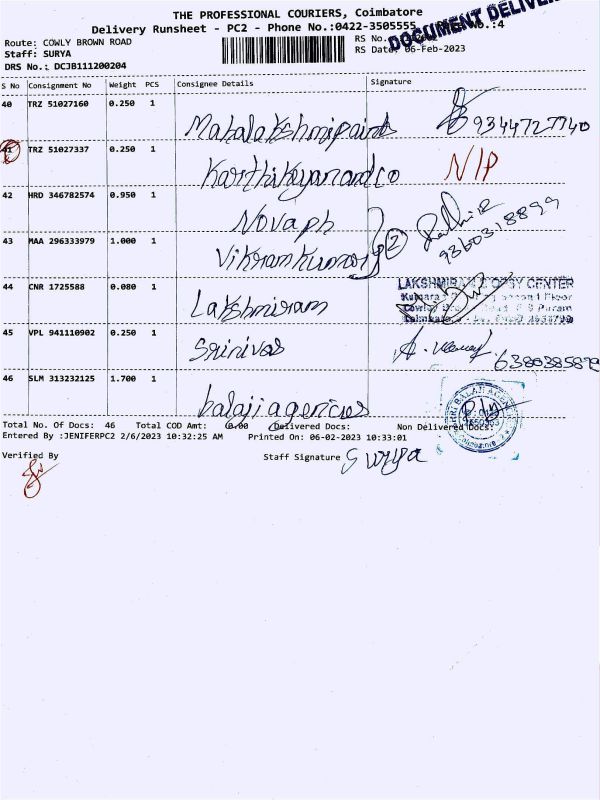 THE PROFESSIONAL COURIERS, Coimbatore
Delivery Runsheet - PC2 - Phone No.:0422-3505555 No.:4
DOCUMENT DELIVER
Route: COWLY BROWN ROAD
Staff: SURYA
DRS No.: DCJB111200204
RS No.
RS Date: 06-Feb-2023
S No Consignment No Weight PCS Consignee Details Signature
40 TRZ 51027160 0.250 1
Mahalakshmipaints 9344727740
41 TRZ 51027337 0.250 1
Karthikayanandco N/P
42 HRD 346782574 0.950 1
Novaph
9360318899
43 MAA 296333979 1.000 1
Vikramkumar 2
44 CNR 1725588 0.080 1
Lakshmiram
LAKSHMIRAM COPSY CENTER
45 VPL 941110902 0.250 1
Srinivas
6380385879
46 SLM 313232125 1.700 1
balajiagencies
Total No. Of Docs: 46 Total COD Amt: 0.00 Delivered Docs: Non Delivered Docs:
Entered By :JENIFERPC2 2/6/2023 10:32:25 AM Printed On: 06-02-2023 10:33:01
Verified By Staff Signature Surya